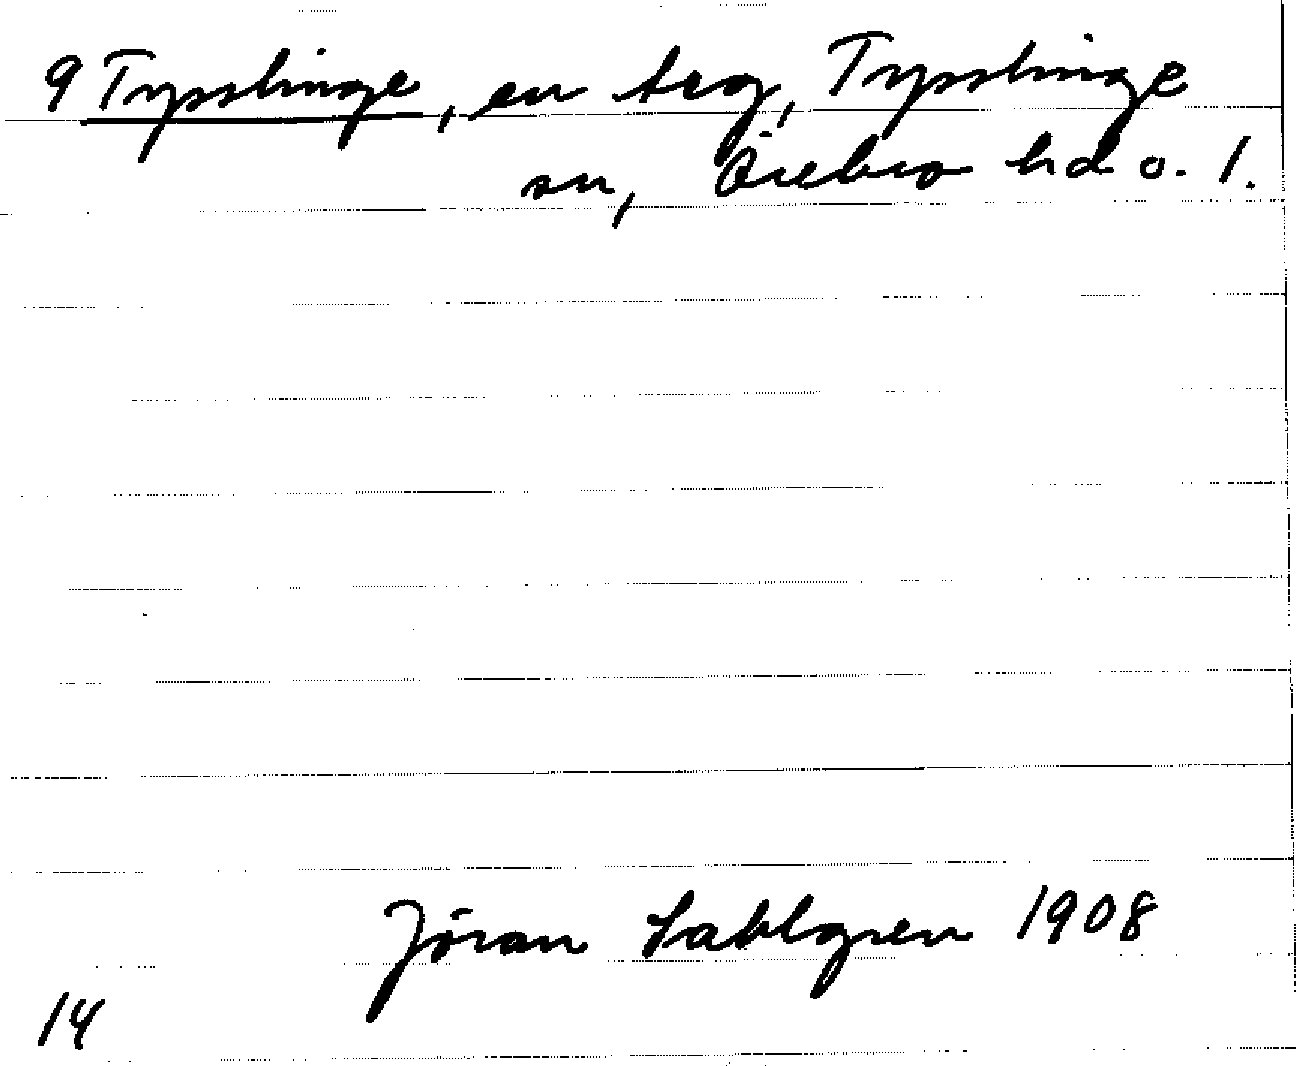 9 Tysslinge, en teg, Tysslinge
sn, Örebro hd o. l.
Jöran Sahlgren 1908
14